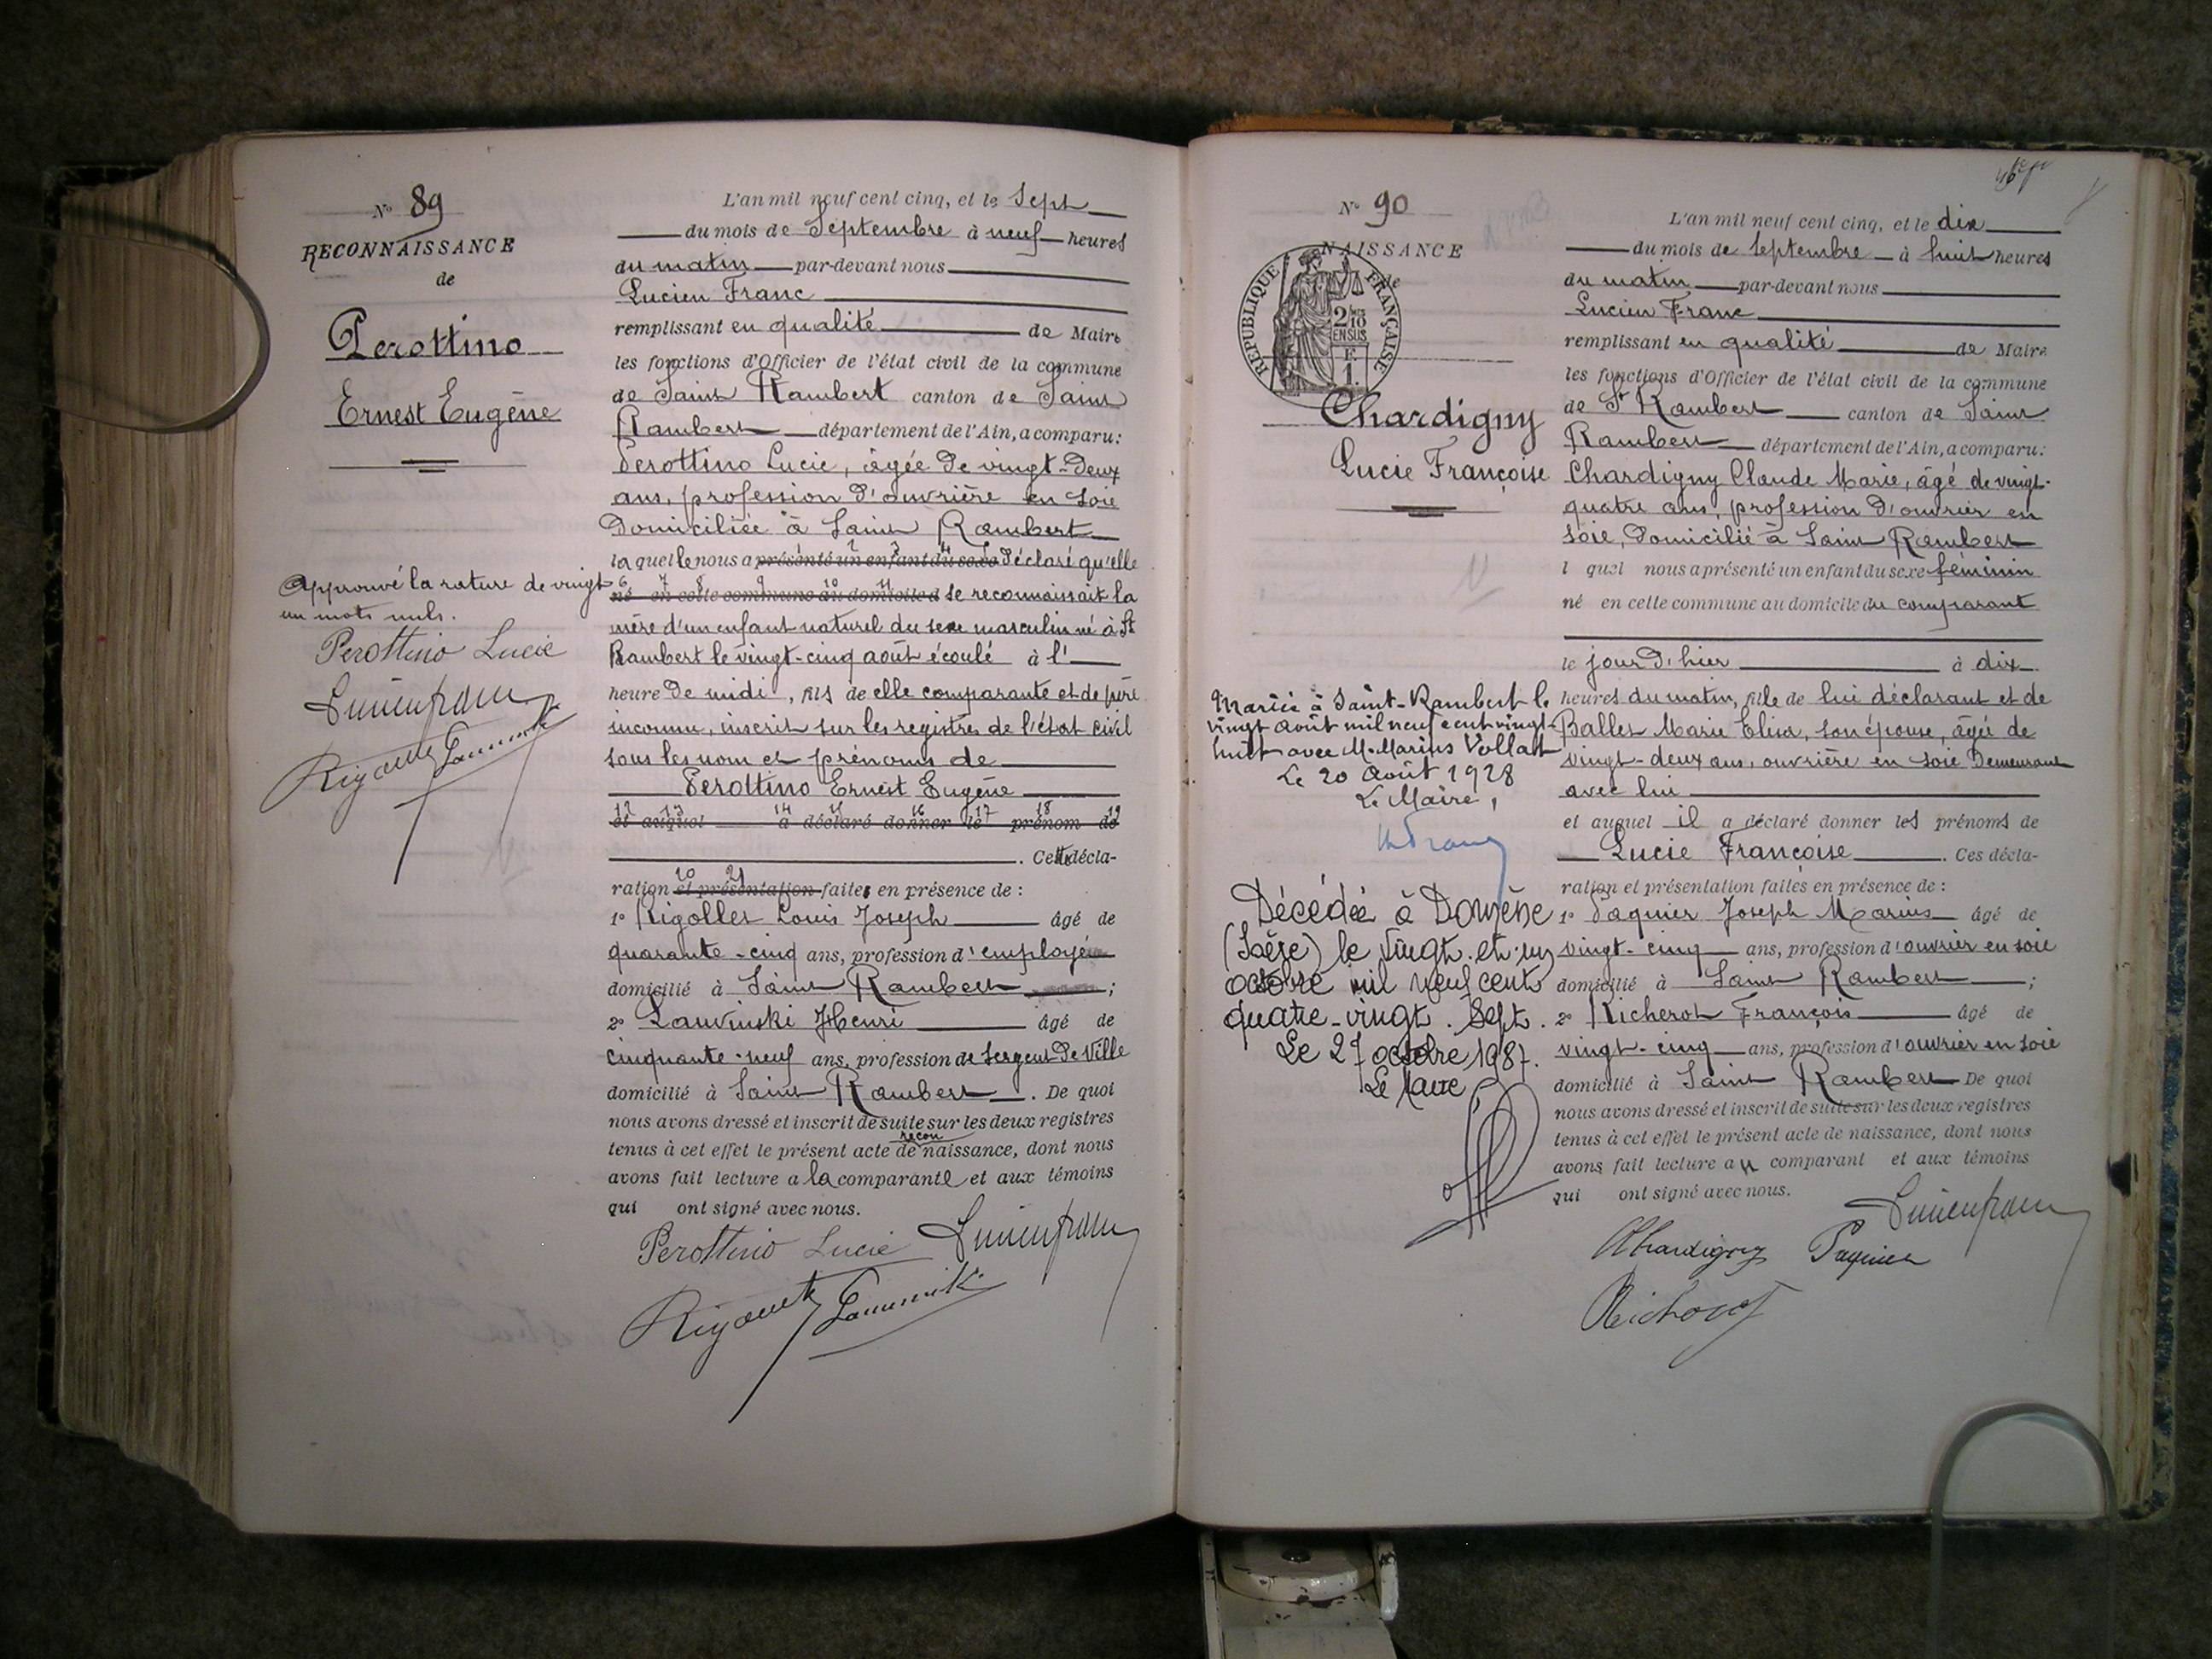 N° 89
RECONNAISSANCE
de
Perottino
Ernest Eugène
Approuvé la rature de vingt
un mots nuls.
Perottino Lucie
L'an mil neuf cent cinq, et le Sept
du mois de Septembre à neuf heures
du matin par-devant nous
Lucien Franc
remplissant en qualité de Maire
les fonctions d'Officier de l'état civil de la commune
de Saint Rambert canton de Saint
Rambert département de l'Ain, a comparu:
Perottino Lucie, âgée de vingt-deux
ans, profession d'ouvrière en soie
Domiciliée à Saint Rambert
laquelle nous a présenté un enfant du sexe déclaré qu'elle
né en cette commune au domicile d se reconnaissait la
mère d'un enfant naturel du sexe masculin né à St
Rambert le vingt-cinq août écoulé à l'
heure de midi, fils de elle comparante et de père
inconnu, inscrit sur les registres de l'état civil
sous les nom et prénoms de
Perottino Ernest Eugène
12 13 14 15 16 17 18 19
et auquel a déclaré donner le prénom de
. Cette décla-
20 21
ration et présentation faites en présence de :
1° Rigollet Louis Joseph âgé de
quarante-cinq ans, profession d'employé
domicilié à Saint Rambert ;
2° Lauvinski Henri âgé de
cinquante-neuf ans, profession de Sergent de Ville
domicilié à Saint Rambert . De quoi
nous avons dressé et inscrit de suite sur les deux registres
recon
tenus à cet effet le présent acte de naissance, dont nous
avons fait lecture a la comparante et aux témoins
qui ont signé avec nous.
Perottino Lucie
N° 90
NAISSANCE
de
REPUBLIQUE FRANÇAISE
2/10
EN SUS
F.
1.
Chardigny
Lucie Françoise
Mariée à Saint-Rambert le
vingt août mil neuf cent vingt-
huit avec M. Marius Vollat
Le 20 Août 1928
Le Maire,
Décédée à Domène
(Isère) le vingt-et-un
octobre mil neuf cent
quatre-vingt-sept.
Le 27 octobre 1987.
Le Maire
L'an mil neuf cent cinq, et le dix
du mois de Septembre à huit heures
du matin par-devant nous
Lucien Franc
remplissant en qualité de Maire
les fonctions d'Officier de l'état civil de la commune
de St Rambert canton de Saint
Rambert département de l'Ain, a comparu:
Chardigny Claude Marie, âgé de vingt-
quatre ans, profession d'ouvrier en
soie, Domicilié à Saint Rambert
l quel nous a présenté un enfant du sexe féminin
né en cette commune au domicile du comparant
le jour d'hier à dix
heures du matin, fille de lui déclarant et de
Ballet Marie Elisa, son épouse, âgée de
vingt-deux ans, ouvrière en soie Demeurant
avec lui
et auquel il a déclaré donner les prénoms de
Lucie Françoise . Ces décla-
ration et présentation faites en présence de :
1° Paquier Joseph Marius âgé de
vingt-cinq ans, profession d'ouvrier en soie
domicilié à Saint Rambert ;
2° Richerot François âgé de
vingt-cinq ans, profession d'ouvrier en soie
domicilié à Saint Rambert De quoi
nous avons dressé et inscrit de suite sur les deux registres
tenus à cet effet le présent acte de naissance, dont nous
avons fait lecture au comparant et aux témoins
qui ont signé avec nous.
Chardigny Paquier
Richerot